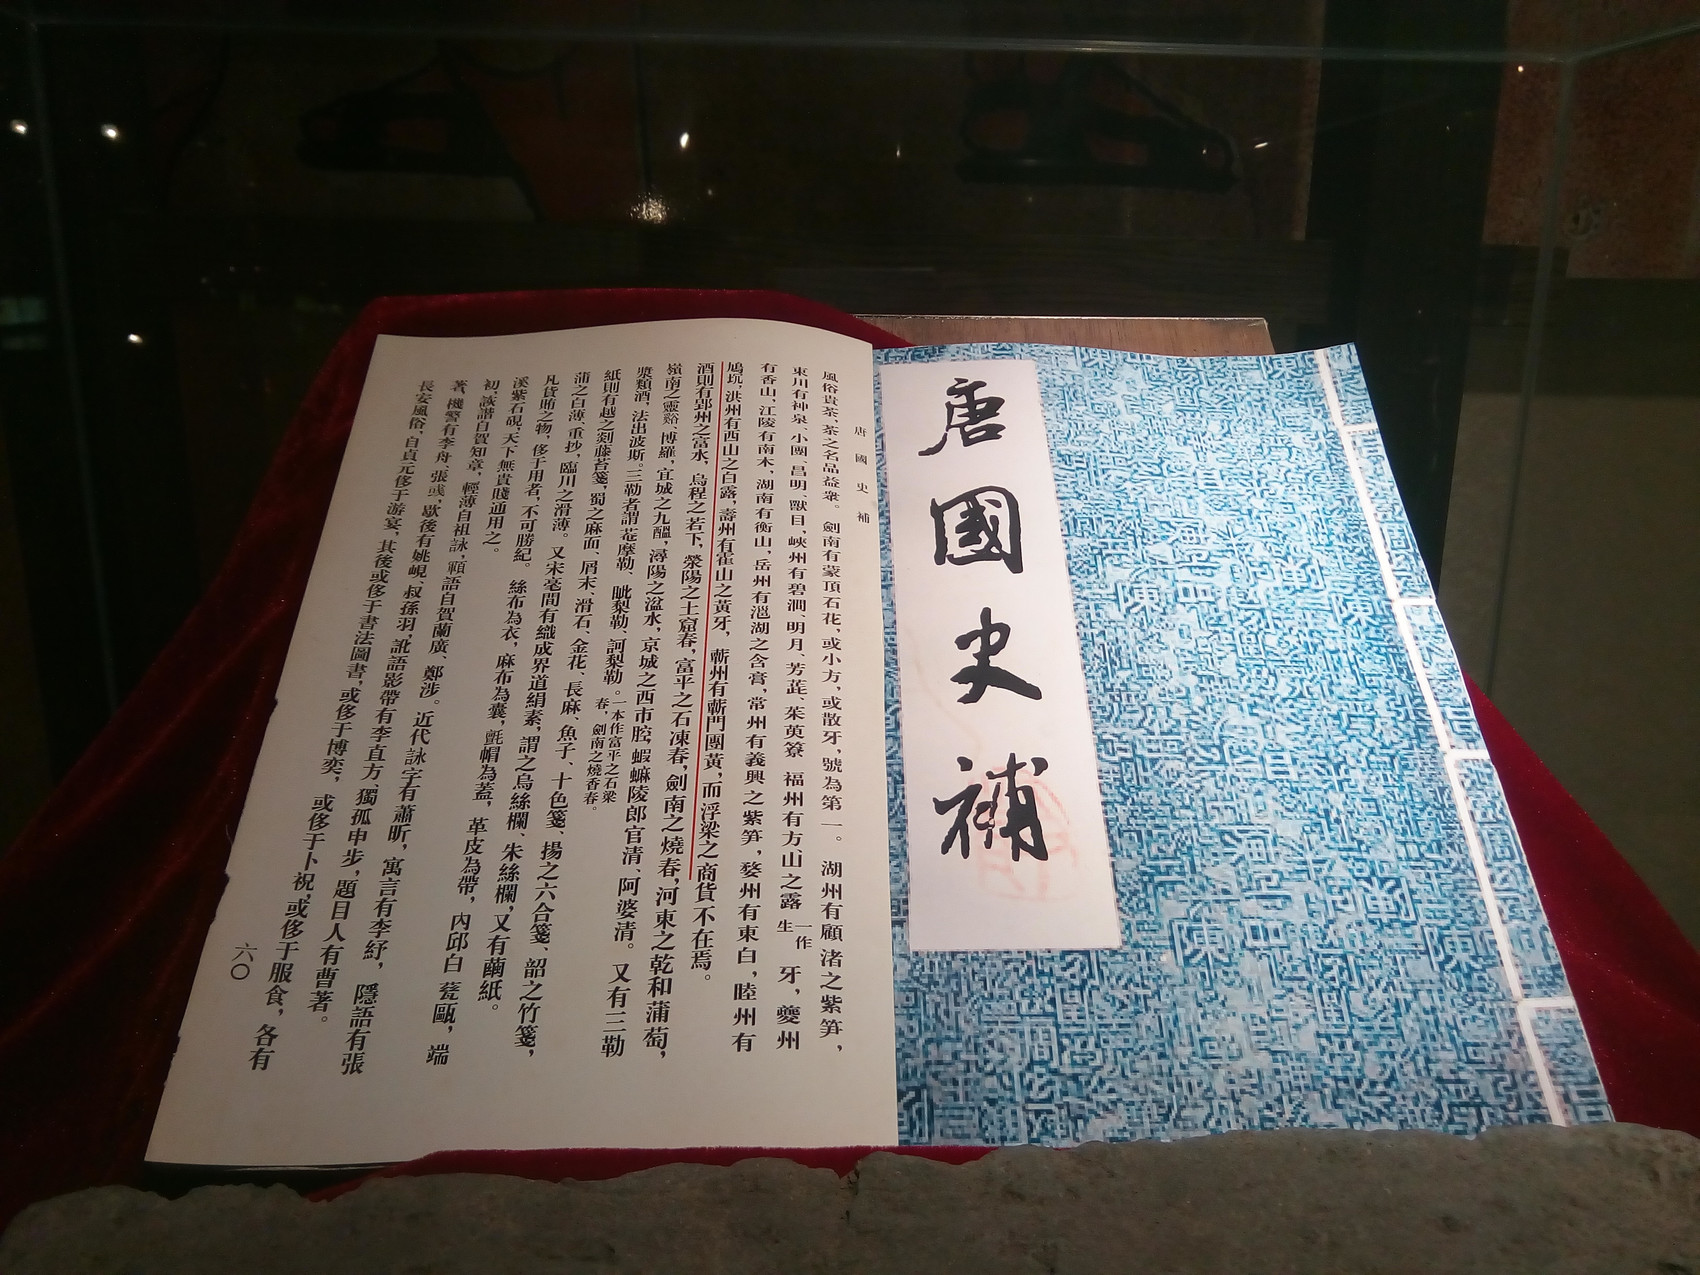 唐國史補
唐國史補
風俗貴茶,茶之名品益衆。劍南有蒙頂石花,或小方,或散牙,號為第一。湖州有顧渚之紫笋,
東川有神泉、小團、昌明、獸目,峽州有碧澗、明月、芳蕋、茱萸簝,福州有方山之露一作生牙,夔州
有香山,江陵有南木,湖南有衡山,岳州有㴩湖之含膏,常州有義興之紫笋,婺州有東白,睦州有
鳩坑,洪州有西山之白露,壽州有霍山之黃牙,蘄州有蘄門團黃,而浮梁之商貨不在焉。
酒則有郢州之富水,烏程之若下,滎陽之土窟春,富平之石凍春,劍南之燒春,河東之乾和蒲萄,
嶺南之靈谿、博羅,宜城之九醞,潯陽之湓水,京城之西市腔,蝦蟆陵郎官清、阿婆清。又有三勒
漿類酒,法出波斯。三勒者謂菴摩勒、毗梨勒、訶梨勒。一本作富平之石梁春,劍南之燒香春。
紙則有越之剡藤苔箋,蜀之麻面、屑末、滑石、金花、長麻、魚子、十色箋,揚之六合箋,韶之竹箋,
蒲之白薄、重抄,臨川之滑薄。又宋亳間有織成界道絹素,謂之烏絲欄、朱絲欄,又有繭紙。
凡貨賄之物,侈于用者,不可勝紀。絲布為衣,麻布為囊,氈帽為蓋,革皮為帶,內邱白瓷甌,端
溪紫石硯,天下無貴賤通用之。
初,詼諧自賀知章,輕薄自祖詠,顊語自賀蘭廣、鄭涉。近代詠字有蕭昕,寓言有李紓,隱語有張
著,機警有李舟、張彧,歇後有姚峴、叔孫羽,訛語影帶有李直方、獨孤申步,題目人有曹著。
長安風俗,自貞元侈于游宴,其後或侈于書法圖畫,或侈于博奕,或侈于卜祝,或侈于服食,各有
六〇